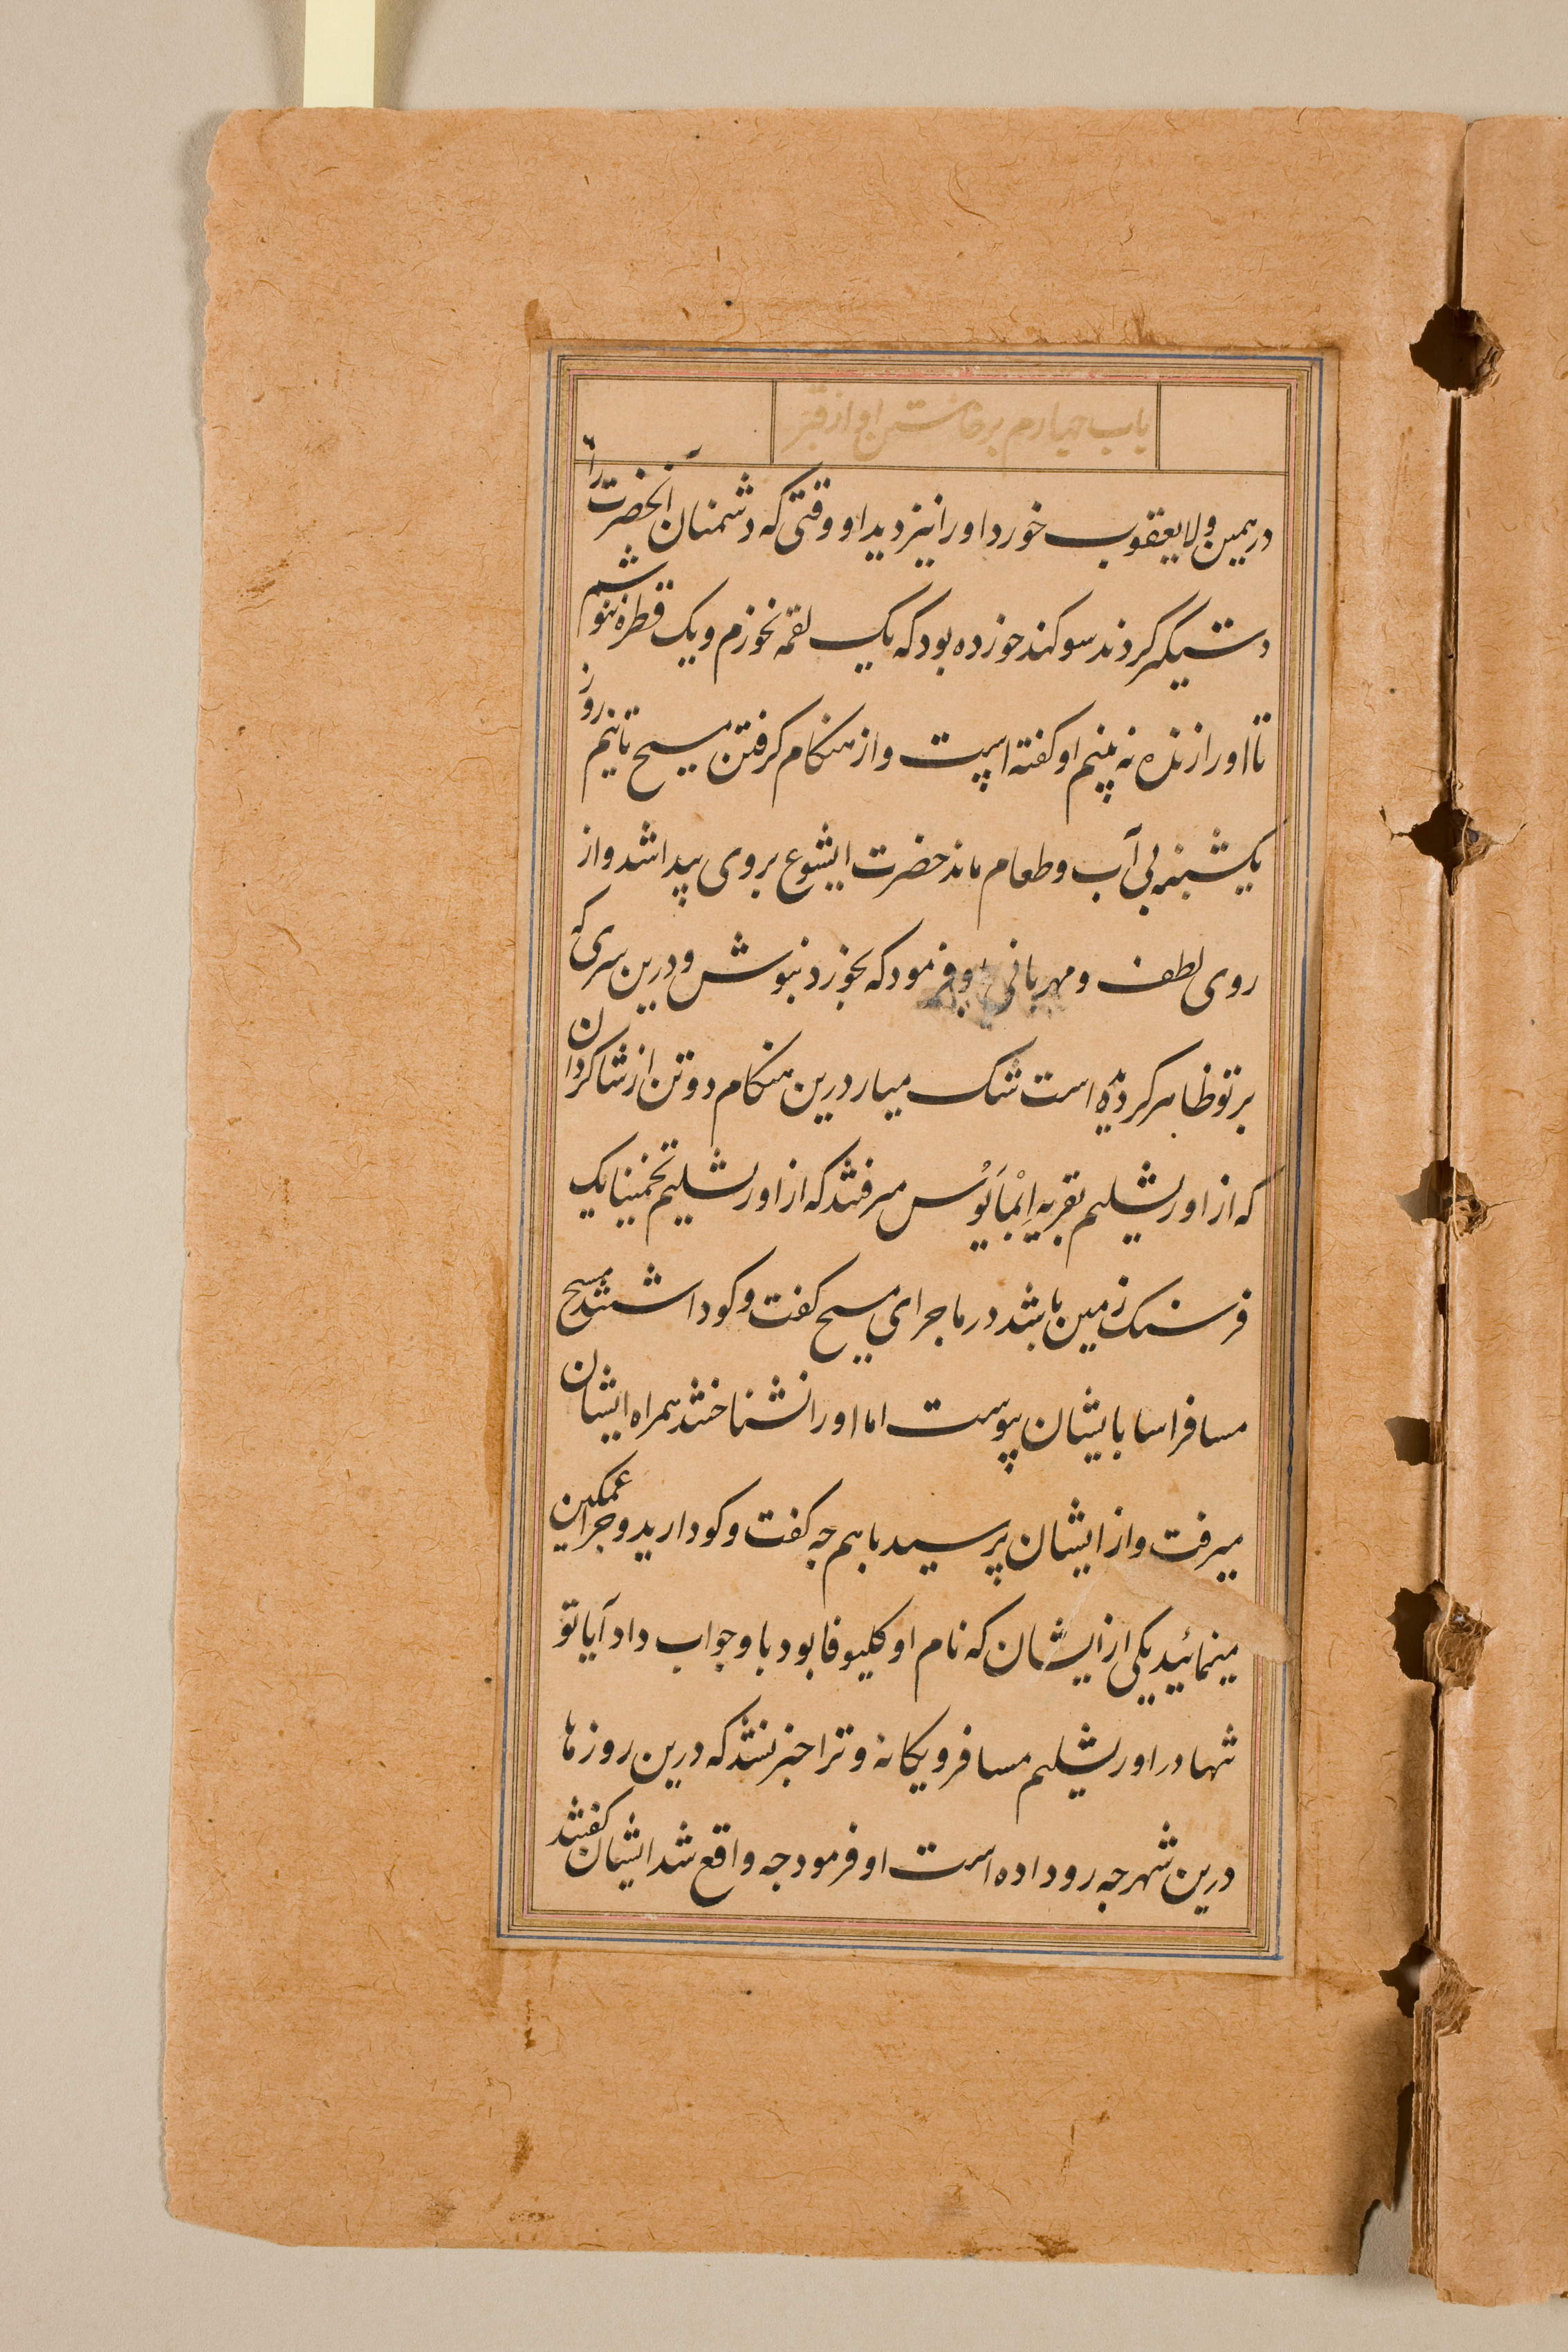 باب چهارم برخاستن او از قبر
درهمین ولا یعقوب خورد اورا نیز دید او وقتی که دشمنان آنحضرت را
دستیگر کردند سوکند خورده بود که یک لقمه نخورم و یک قطره ننوشم
تا اورا زنده نه بینم او کفته است و از هنکام کرفتن مسیح تا نیم روز
یکشبنه بی آب و طعام ماند حضرت ایشوع بروی پیدا شد و از
روی لطف و مهربانی باو فرمود که بخور و بنوش و درین سری که
بر تو ظاهر کرده است شک میار درین هنکام دو تن از شاکردان
که از اورشلیم بقریه اِیْمَاَیُوْس میرفتند که از اورشلیم تخمینا یک
فرسنک زمین باشد در ماجرای مسیح کفت و کو داشتند مسیح
مسافر اسا بایشان پیوست اما اورا نشناختند همراه ایشان
میرفت و از ایشان پرسید باهم چه کفت و کو دارید و چرا غمکین
مینمائید یکی از ایشان که نام او کلیوفا بود باو جواب داد آیا تو
تنها در اورشلیم مسافر و یکانه و ترا خبر نشد که درین روزها
درین شهر چه رو داده است او فرمود چه واقع شد ایشان کفتند